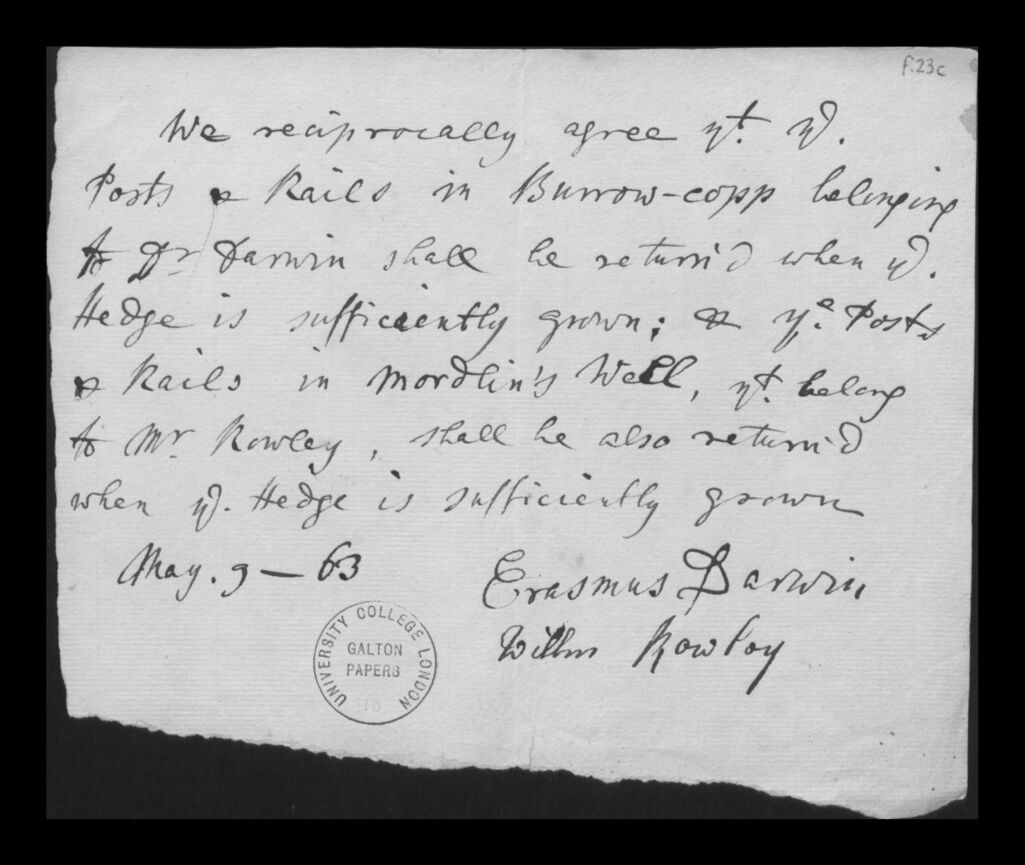 f.23c
We reciprocally agree yt. yd.
Posts & Rails in Burrow-copp belonging
to Dr Darwin shall be return'd when yd.
Hedge is sufficiently grown; & ye. Posts
& Rails in Mordlin's Well, yt. belong
to Mr. Rowley, shall be also return'd
when yd. Hedge is sufficiently grown
May. 9 — 63
Erasmus Darwin
Willm Rowley
UNIVERSITY COLLEGE LONDON
GALTON
PAPERS